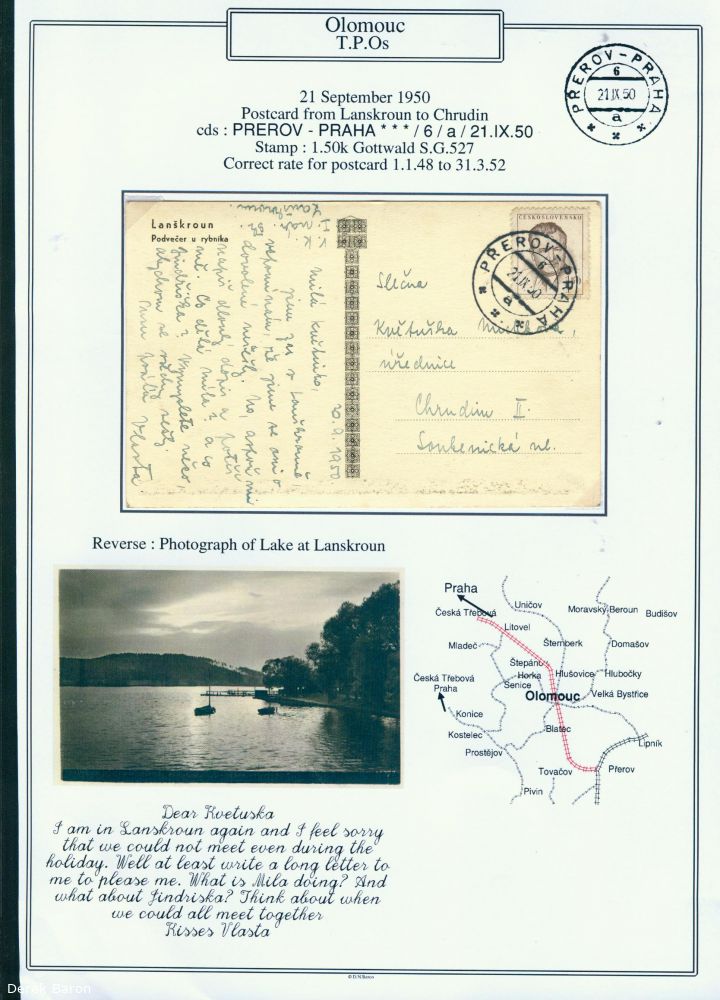 Olomouc
T.P.Os
PŘEROV-PRAHA
6
21.IX.50
a
21 September 1950
Postcard from Lanskroun to Chrudin
cds : PREROV - PRAHA * * * / 6 / a / 21.IX.50
Stamp : 1.50k Gottwald S.G.527
Correct rate for postcard 1.1.48 to 31.3.52
Lanškroun
Podvečer u rybníka
30.9.1950.
Milá Květuško,
jsem zas v Lanškrouně,
že jsme se ani o
dovolené No, aspoň mi
napiš dlouhý dopis
Co dělá Míla? a co
Jindřiška? Vymyslete něco,
abychom se sešly
Vlasta.
ČESKOSLOVENSKO
PŘEROV-PRAHA
6
21.IX.50
a
Slečna
Květuška
úřednice
Chrudim II.
Soukenická ul.
Reverse : Photograph of Lake at Lanskroun
Praha
Česká Třebová
Uničov
Moravský Beroun
Budišov
Litovel
Mladeč
Šternberk
Domašov
Štěpánov
Česká Třebová
Praha
Horka
Senice
Hlušovice
Hlubočky
Olomouc
Velká Bystřice
Konice
Kostelec
Blatec
Prostějov
Lipník
Tovačov
Přerov
Pivin
Dear Kvetuska
I am in Lanskroun again and I feel sorry
that we could not meet even during the
holiday. Well at least write a long letter to
me to please me. What is Mila doing? And
what about Jindriska? Think about when
we could all meet together
Kisses Vlasta
© D.N.Baron
Derek Baron